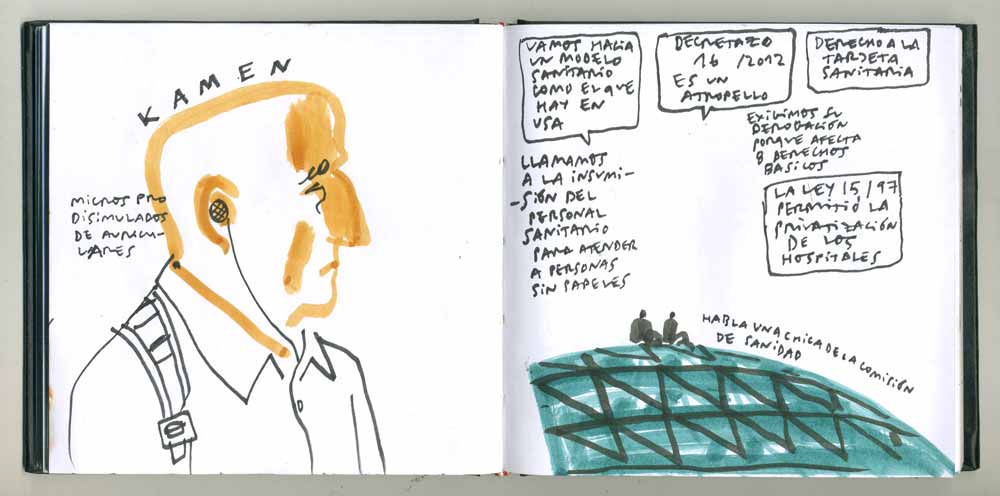 KAMEN
MICROS PRO
DISIMULADOS
DE AURICU-
LARES
VAMOS HACIA
UN MODELO
SANITARIO
COMO EL QUE
HAY EN
USA
DECRETAZO
16 /2012
ES UN
ATROPELLO
DERECHO A LA
TARJETA
SANITARIA
EXIGIMOS SU
DEROGACIÓN
PORQUE AFECTA
A DERECHOS
BÁSICOS
LLAMAMOS
A LA INSUMI-
-SIÓN DEL
PERSONAL
SANITARIO
PARA ATENDER
A PERSONAS
SIN PAPELES
LA LEY 15/97
PERMITIÓ LA
PRIVATIZACIÓN
DE LOS
HOSPITALES
HABLA UNA CHICA DE LA COMISIÓN
DE SANIDAD